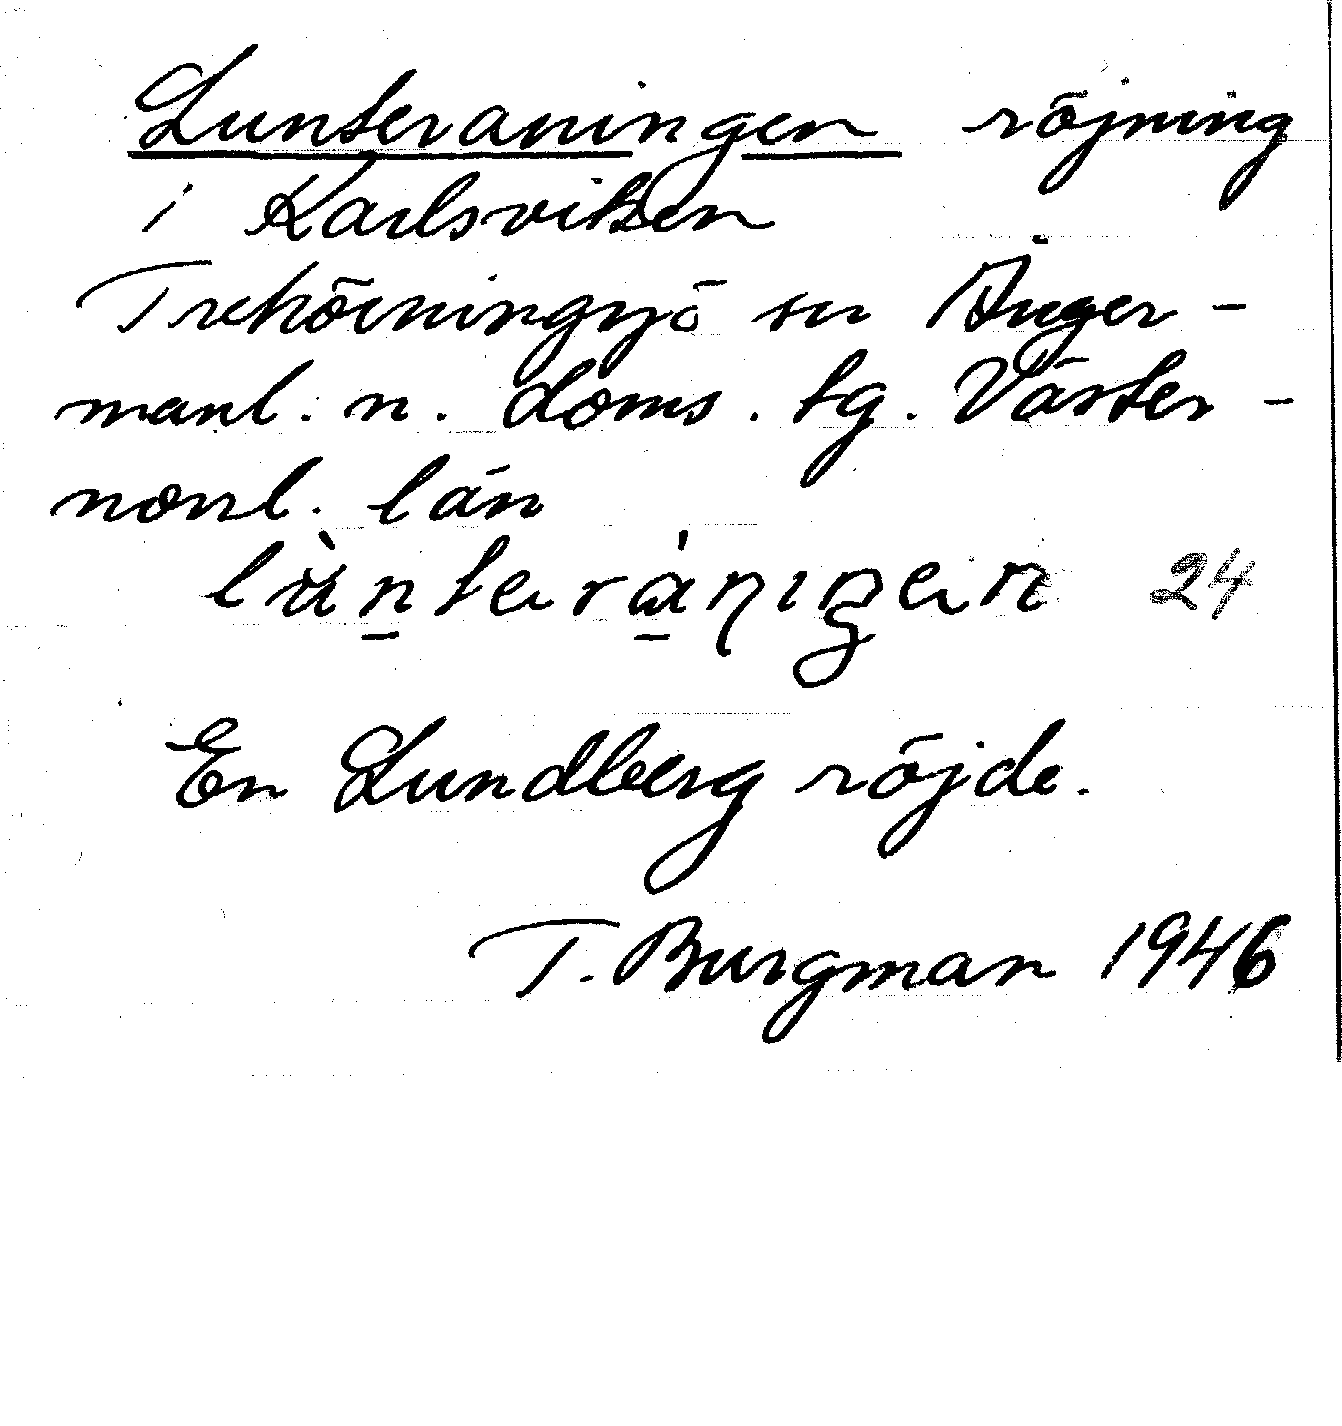 Lunteraningen röjning
i Karlsviken
Trehörningsjö sn Ånger-
manl. n. doms. tg. Väster-
norrl. län
lùnteràniŋen 24
En Lundberg röjde.
T. Burgman 1946